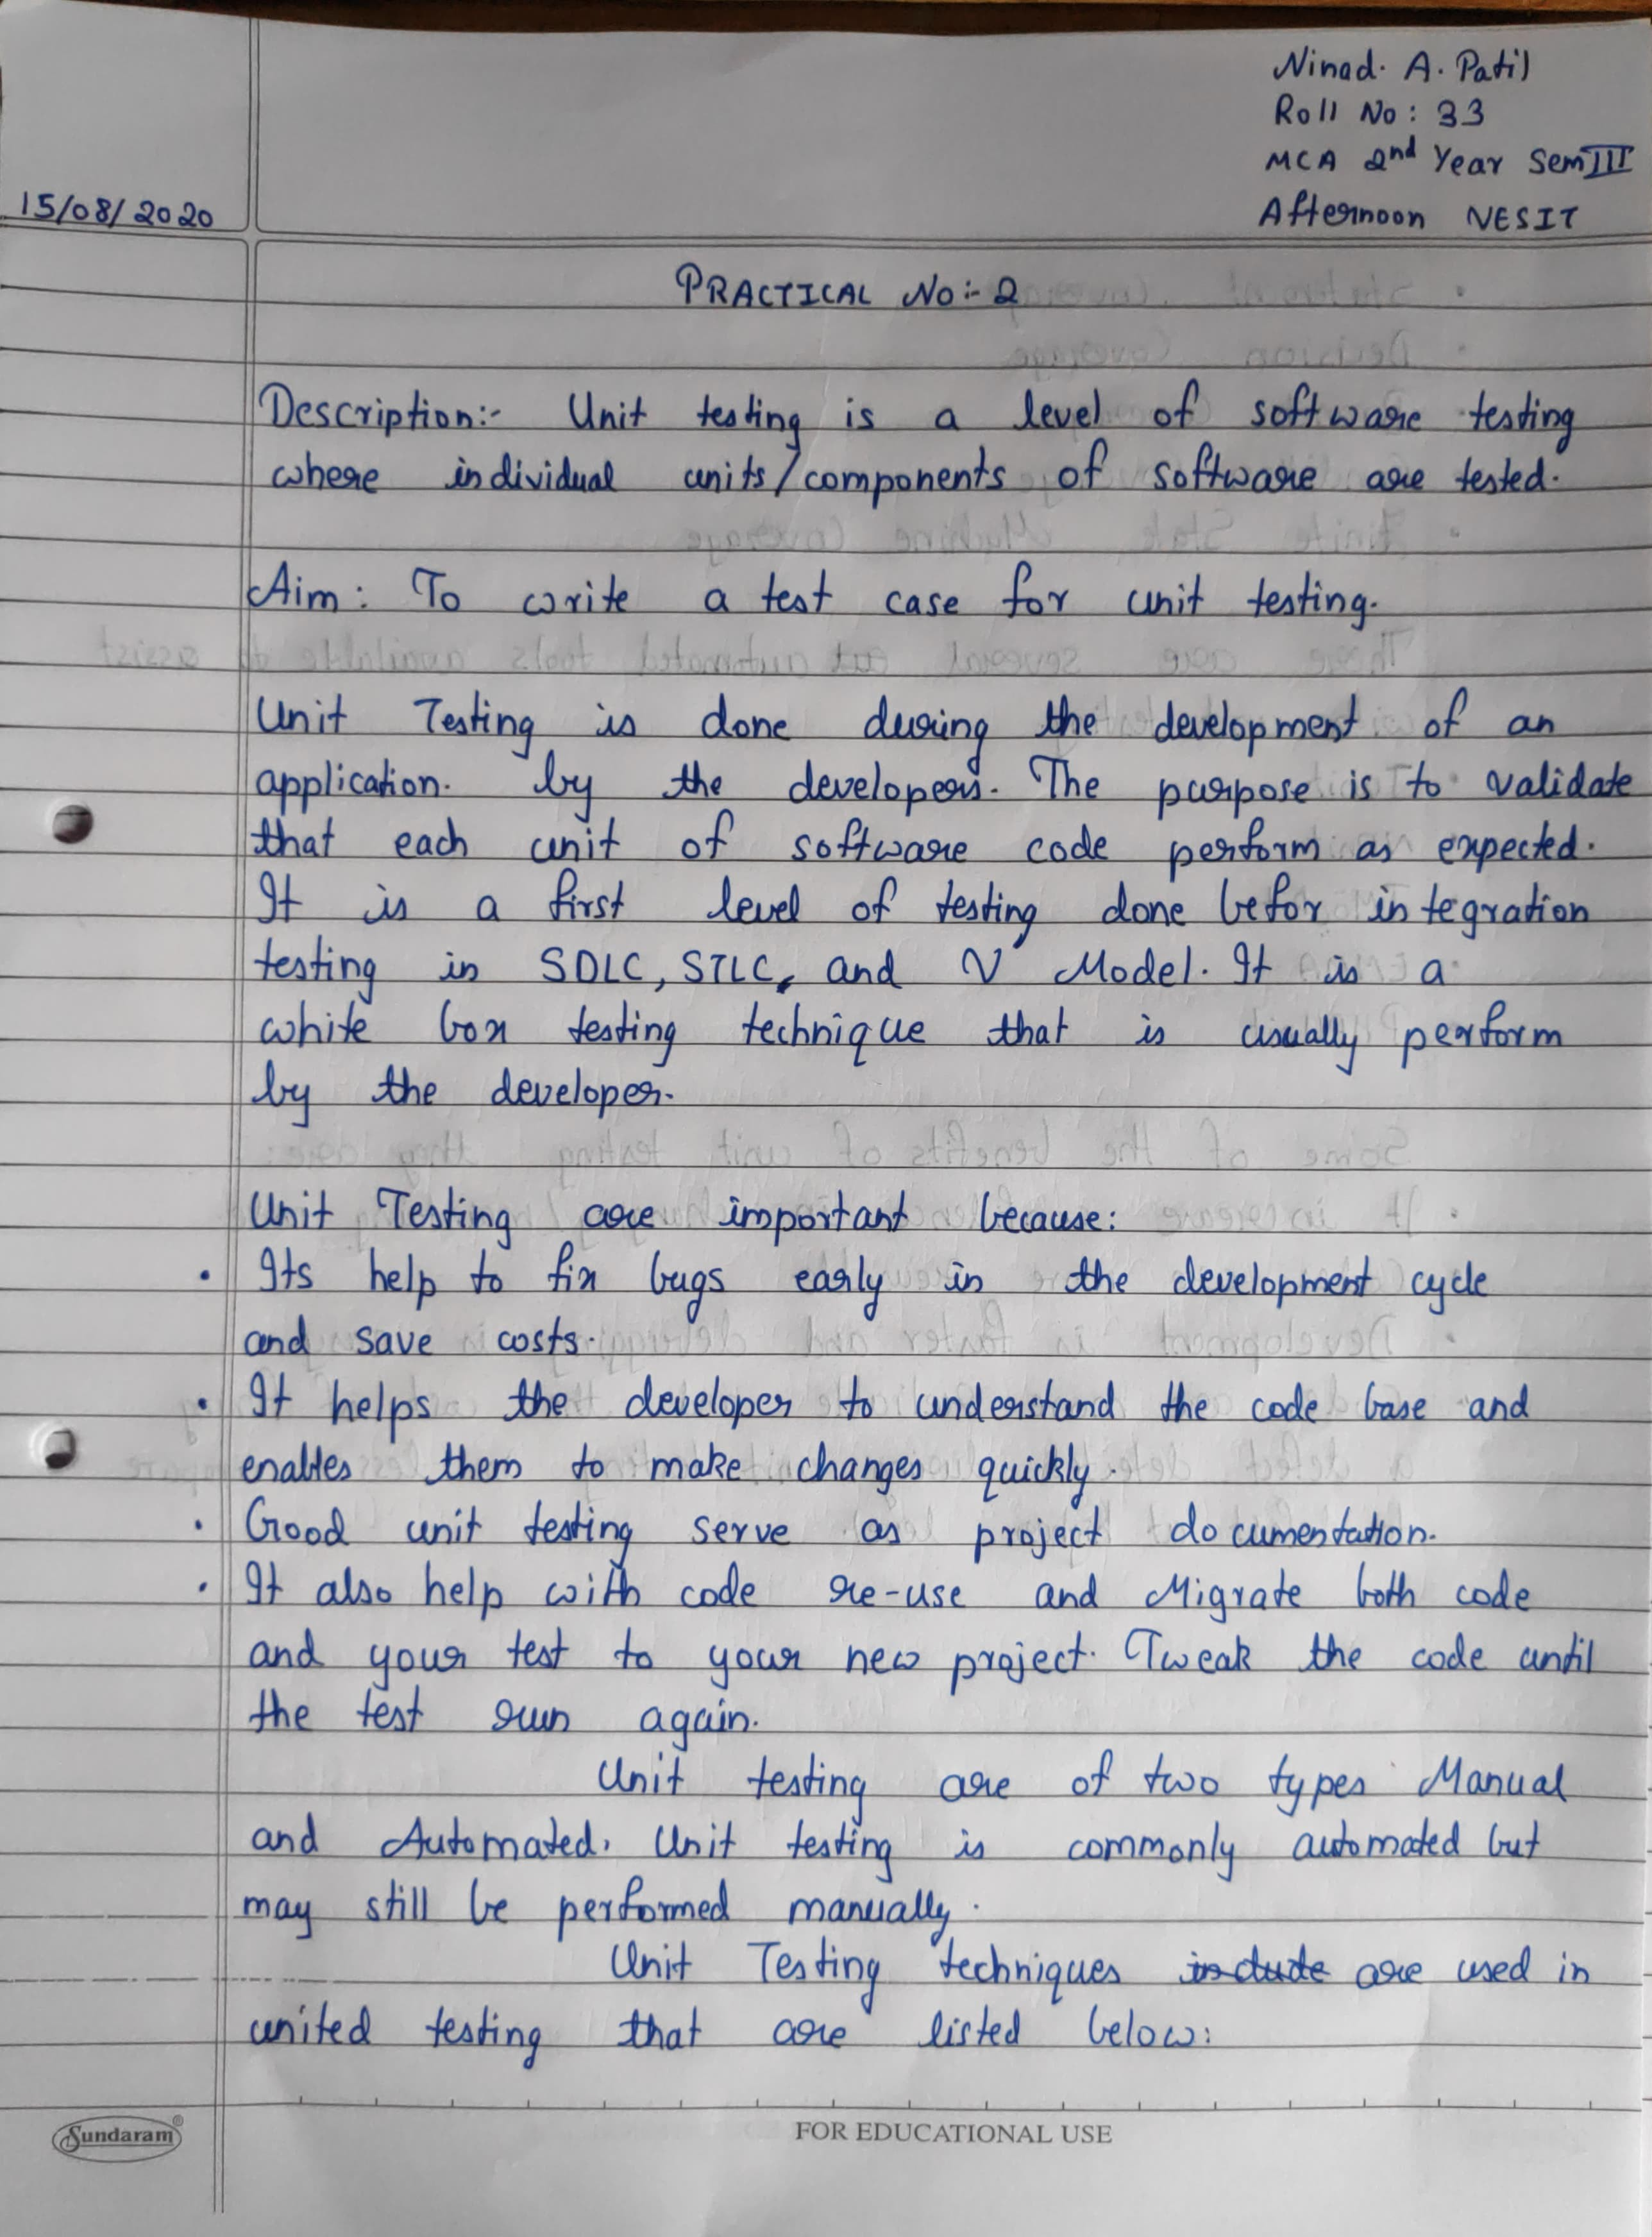 Ninad. A. Patil
Roll No : 33
MCA 2nd Year Sem III
15/08/2020
Afternoon NESIT
PRACTICAL No :- 2
Description:- Unit testing is a level of software testing
where individual units/components of software are tested.
Aim : To write a test case for unit testing.
Unit Testing is done during the development of an
application. by the developers. The purpose is to validate
that each unit of software code perform as expected.
It is a first level of testing done befor integration
testing in SDLC, STLC, and V Model. It is a
white box testing technique that is usually perform
by the developer.
Unit Testing are important because:
• Its help to fix bugs early in the development cycle
and save costs.
• It helps the developer to understand the code base and
enables them to make changes quickly.
• Good unit testing serve as project documentation.
• It also help with code re-use and Migrate both code
and your test to your new project. Tweak the code until
the test run again.
Unit testing are of two types Manual
and Automated. Unit testing is commonly automated but
may still be performed manually.
Unit Testing techniques include are used in
united testing that are listed below:
Sundaram®
FOR EDUCATIONAL USE